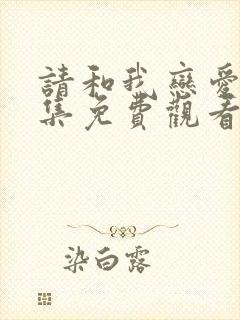 請和我戀愛
集免費觀看
染白露